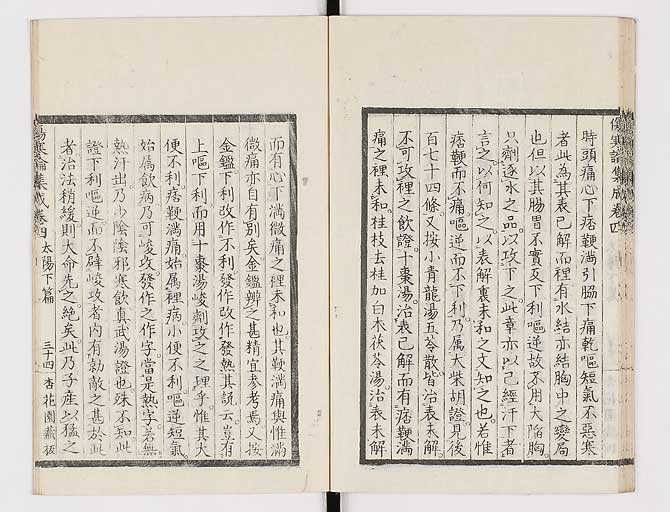 傷寒論集成卷四
時頭痛心下痞鞕滿引脇下痛乾嘔短氣不惡寒
者此為其表已解而裡有水結亦結胸中之變局
也但以其腸胃不實反下利嘔逆故不用大陷胸
只劑逐水之品以攻下之此章亦以已經汗下者
言之以何知之以表解裏未和之文知之也若惟
痞鞕而不痛嘔逆而不下利乃属大柴胡證見後
百七十四條又按小青龍湯五苓散皆治表未解
不可攻裡之飲證十棗湯治表已解而有痞鞕滿
痛之裡未和桂枝去桂加白朮茯苓湯治表未解
而有心下滿微痛之裡未和也其鞕滿痛與惟滿
微痛亦自有別矣金鑑辨之甚精宜參考焉又按
金鑑下利改作不利發作改作發熱其説云豈有
上嘔下利而用十棗湯峻劑攻之之理乎惟其大
便不利痞鞕滿痛始属裡病小便不利嘔逆短氣
始属飲病乃可峻攻發作之作字當是熱字若無
熱汗出乃少陰陰邪寒飲真武湯證也殊不知此
證下利嘔逆而不辟峻攻者内有勍敵之甚於此
者治法稍緩則大命先之絶矣此乃子産以猛之
傷寒論集成卷四 太陽下篇 三十四 杏花園藏板